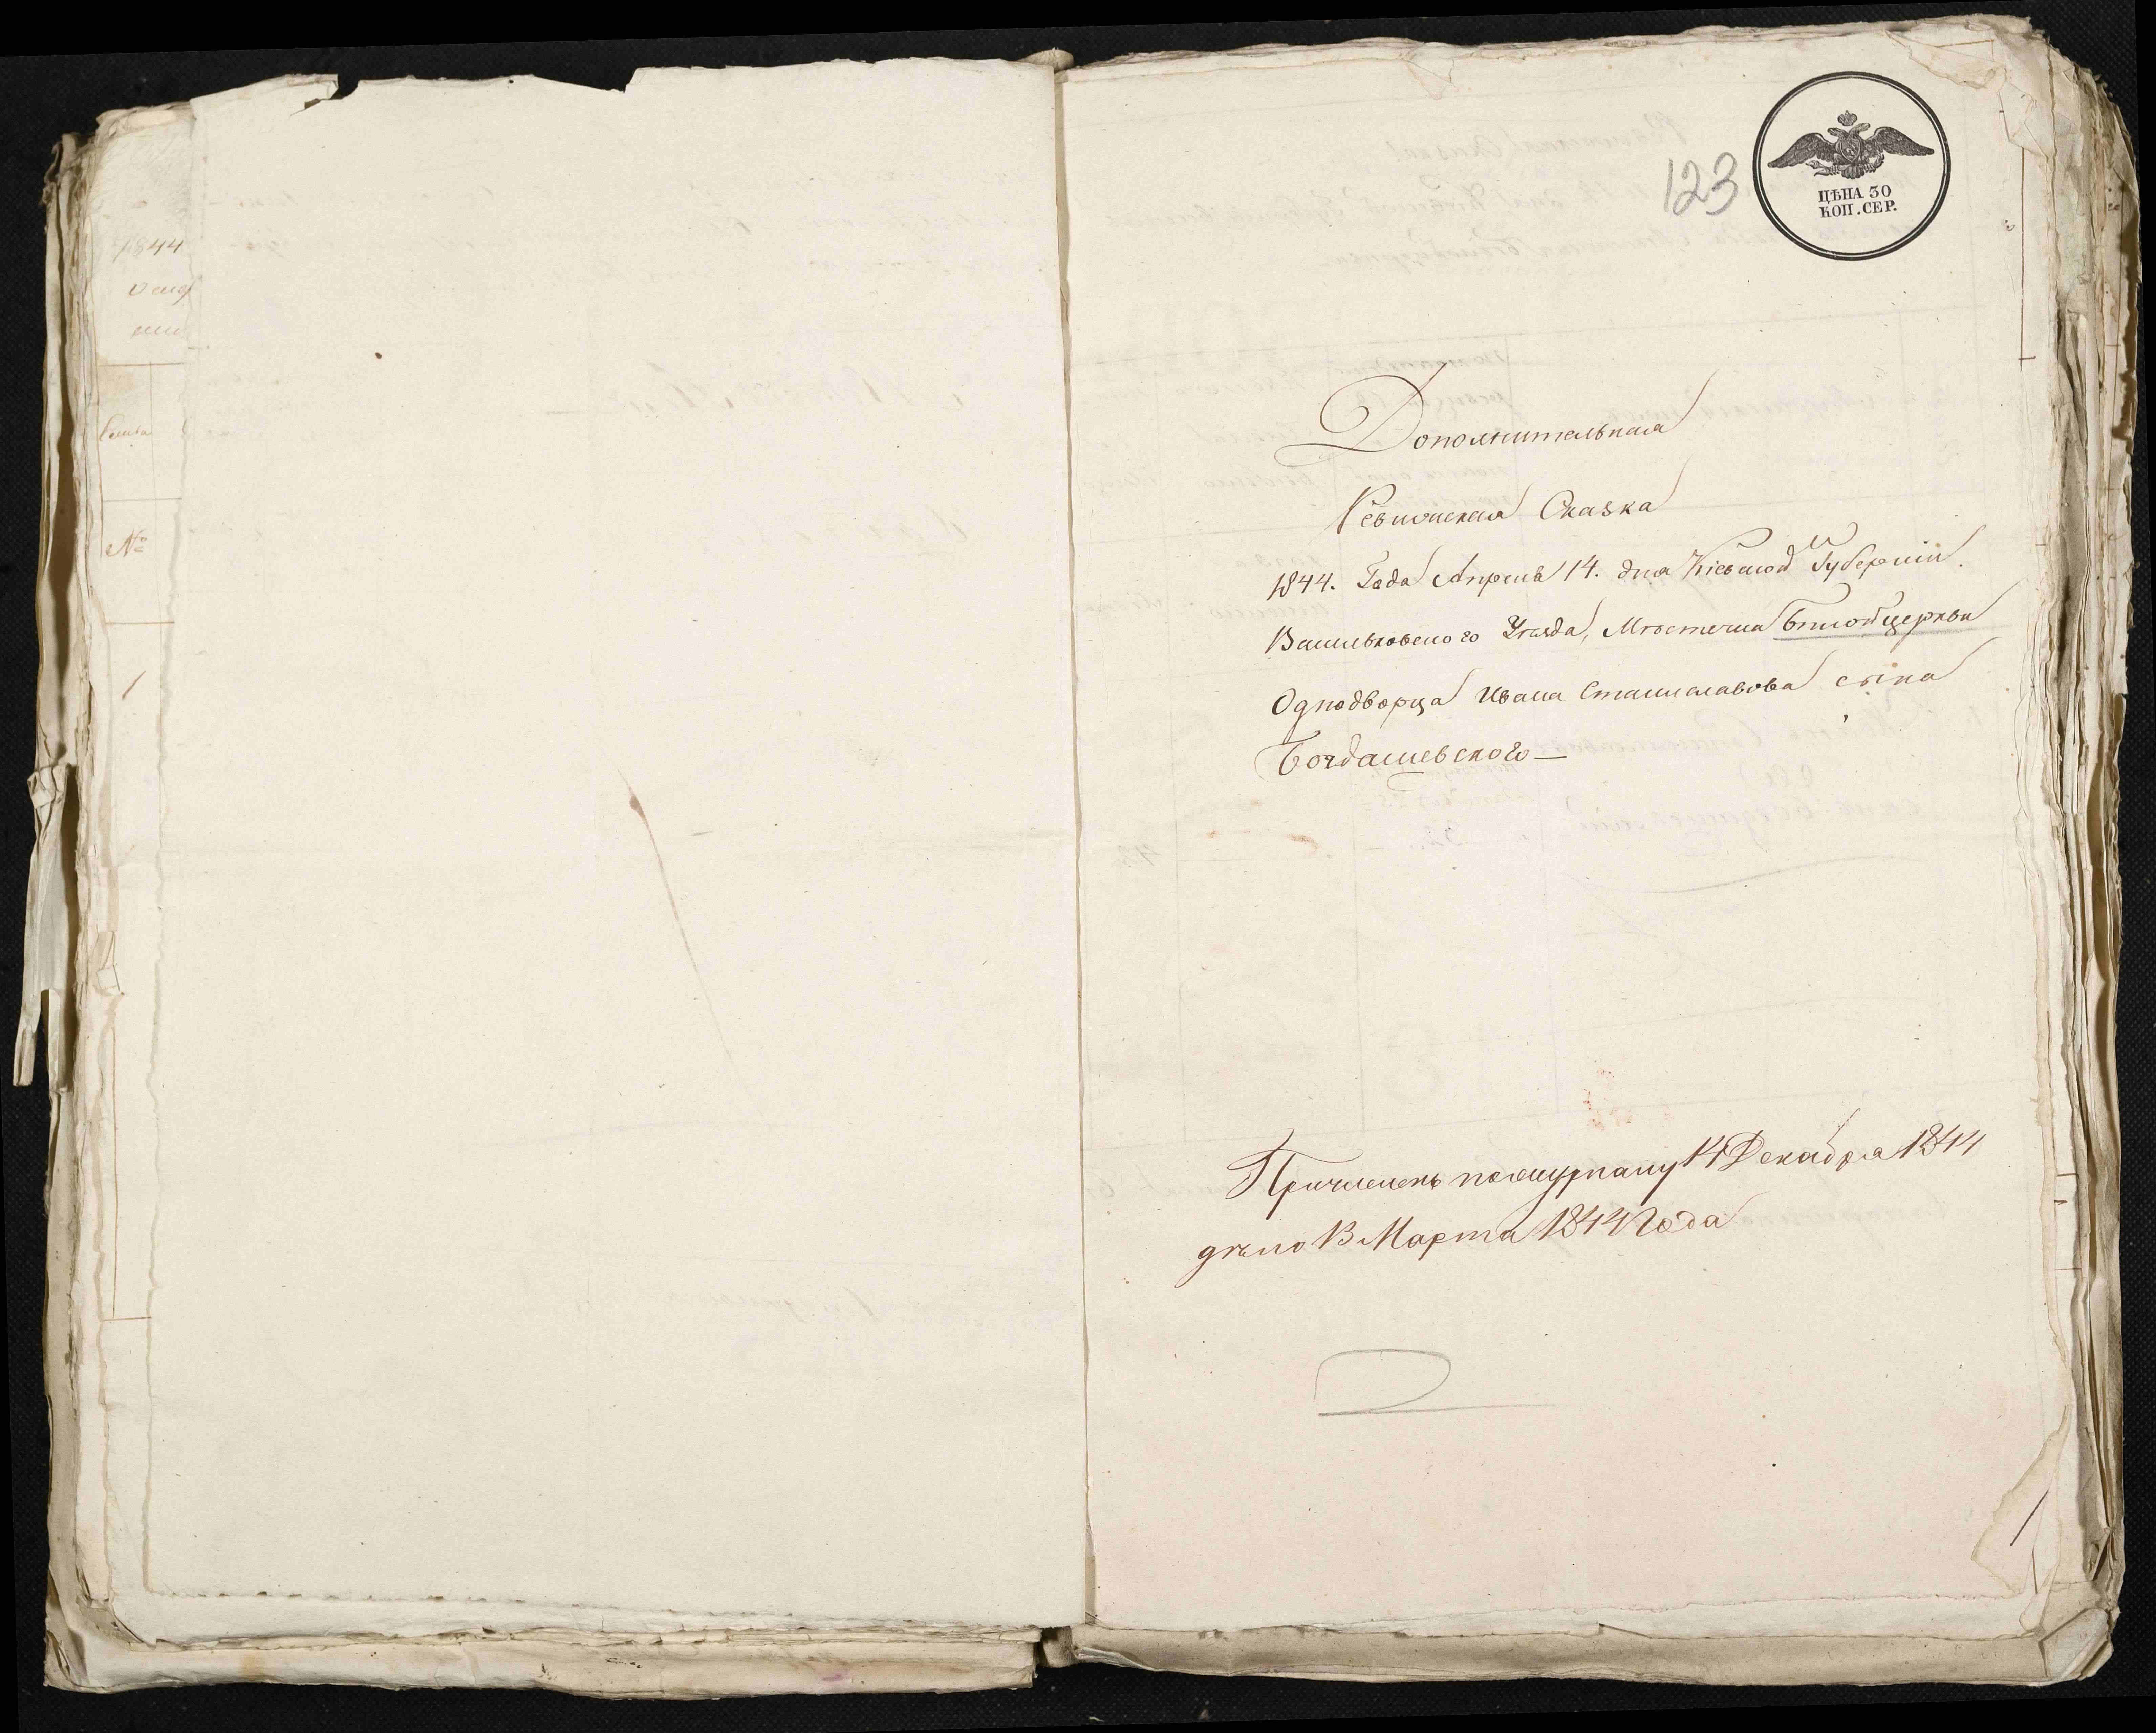 1844
№
1
123
ЦѢНА 30
КОП. СЕР.
Дополнительная
Ревизская Сказка
1844. Года Апреля 14. дня Кіевской Губерніи.
Васильковского Уѣзда, Мѣстечка Бѣлойцеркви
Однодворца Ивана Станиславова сына
Богдашевского —
Причисленъ пожурналу 14 Декабря 1844
дѣло Марта 1844 Года